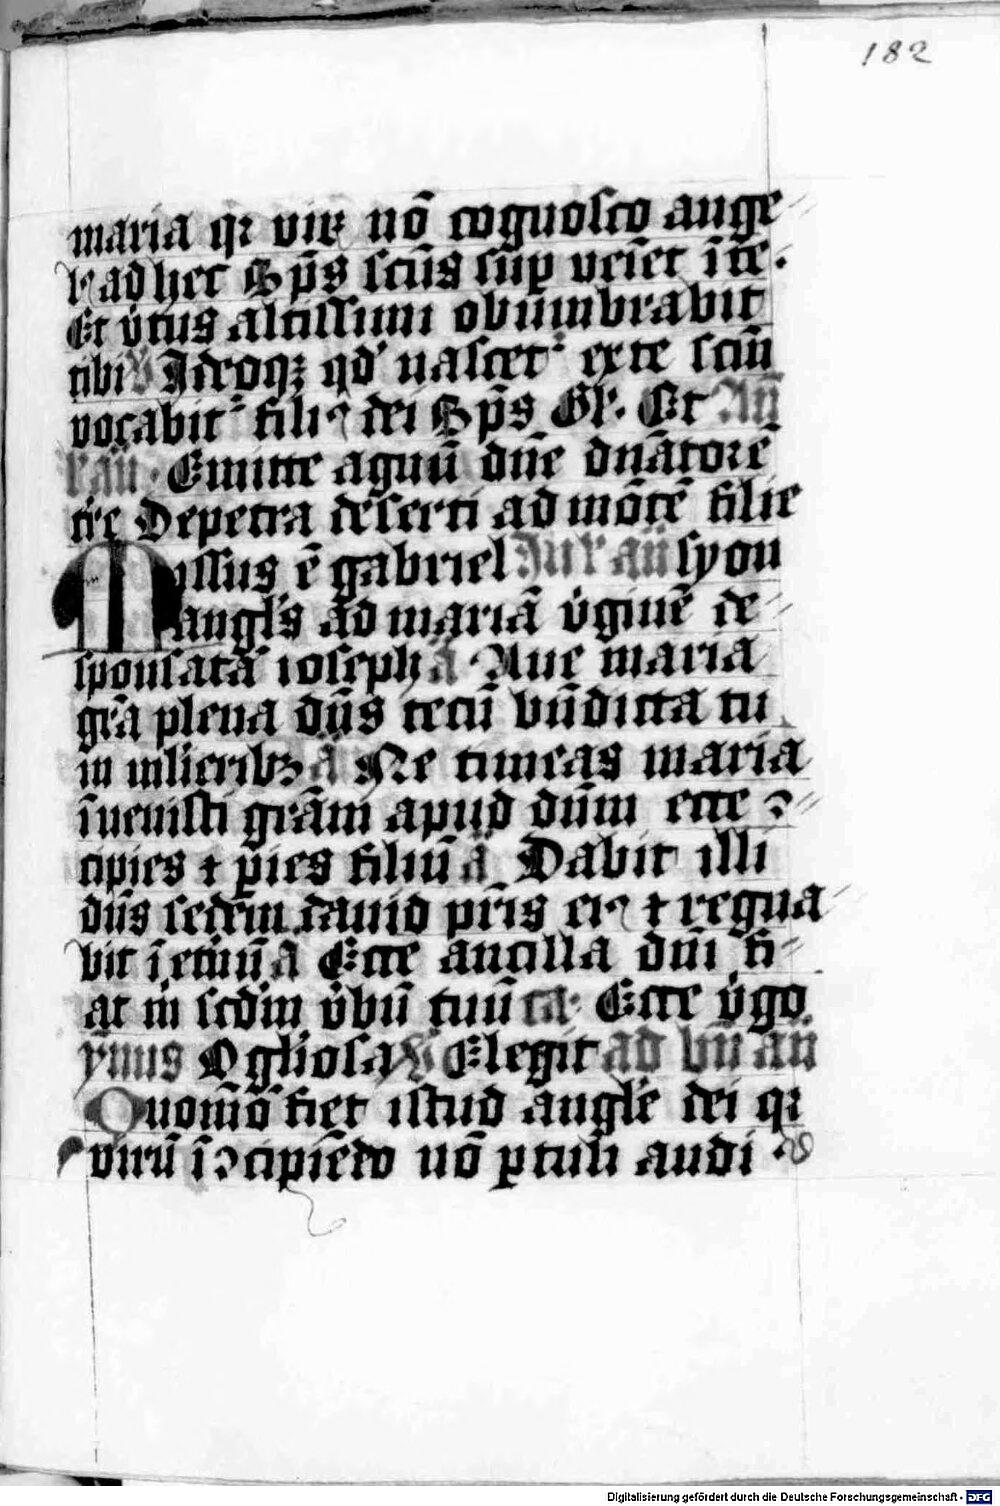 182
maria qꝛ virꝰ nō cognosco ange
lꝰ ad hec Sp̄s sc̄us sup̲ veīet ī te.
Et v̓tus altissimi obumbrabit
tibi ℣ Ideoqꝫ qd̓ nascet᷑ exte sc̄m̄
vocabit᷑ filiꝰ dei Sp̄s Gl̓. Et An̄
lau. Emitte agnū dn̄e dn̄atorē
tr̓e De petra deserti ad mōtē filie
Missus ē gabriel In lau syon
angl̓s ad mariā v̓ginē de
sponsatā ioseph a Aue maria
gr̄a plena dn̄s tecū bn̄dicta tu
in mlieribꝫ a Ne timeas maria
īuenisti grām apud dn̄m ecce ꝯ
cipies ⁊ p̲ies filiū a Dabit illi
dn̄s sedem dauid pr̄is eiꝰ ⁊ regna
bit ī et̓nū a Ecce ancilla dn̄i fi
at m̓ scdm v̓bū tuū ca. Ecce v̓go
ymnus O gl̓iosa ℣ Elegit ad bn̄ an̄
Quomō fiet istud angl̓e dei qꝛ
virū ī ꝯcipiēdo nō p̲tuli audi
Digitalisierung gefördert durch die Deutsche Forschungsgemeinschaft - DFG